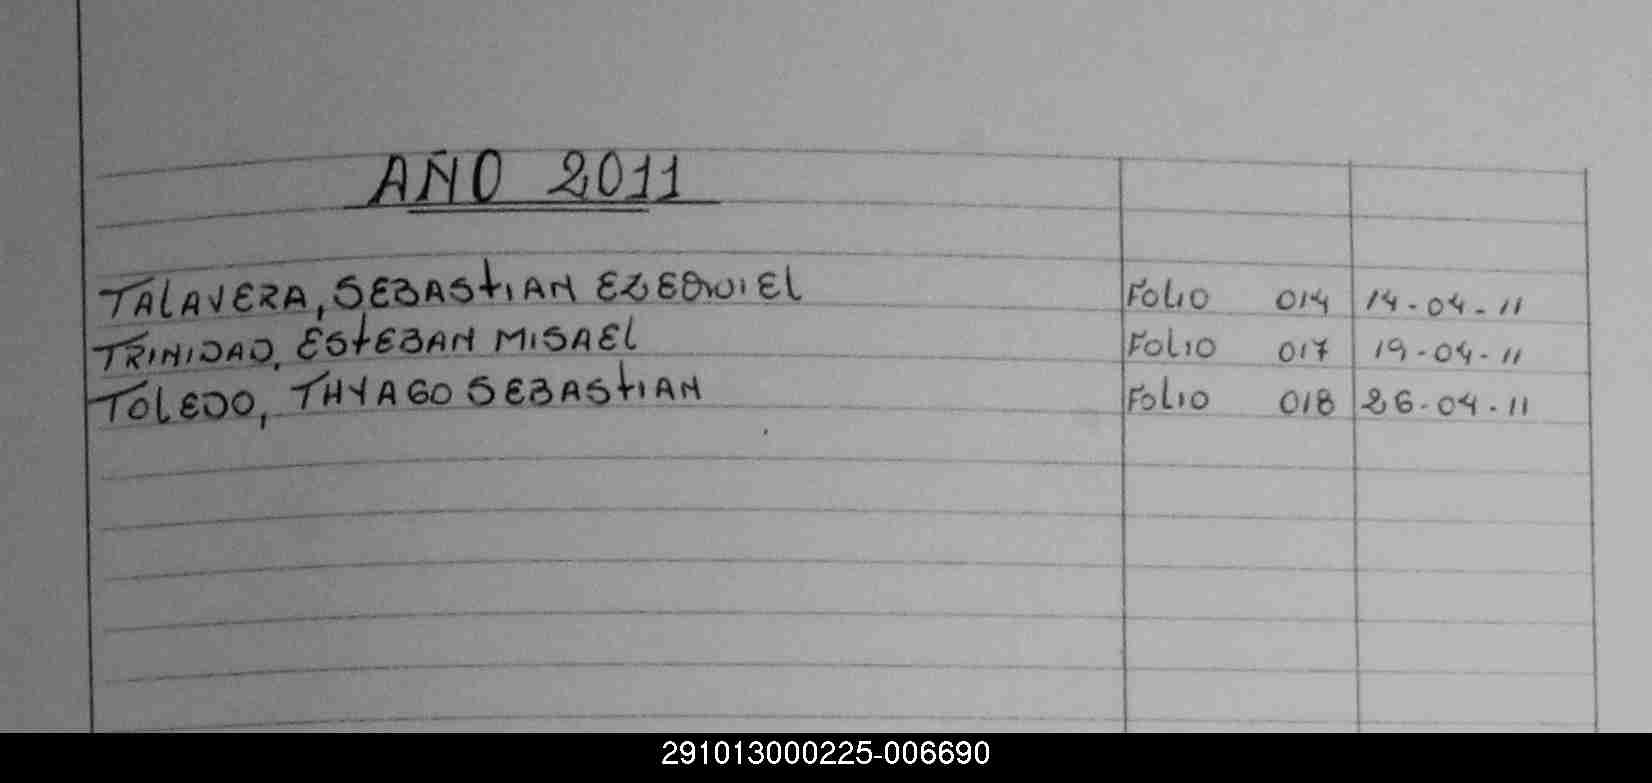 AÑO 2011
TALAVERA, SEBASTIAN EZEQUIEL Folio 014 14-04-11
TRINIDAD, ESTEBAN MISAEL Folio 017 19-04-11
TOLEDO, THYAGO SEBASTIAN Folio 018 26-04-11
291013000225-006690